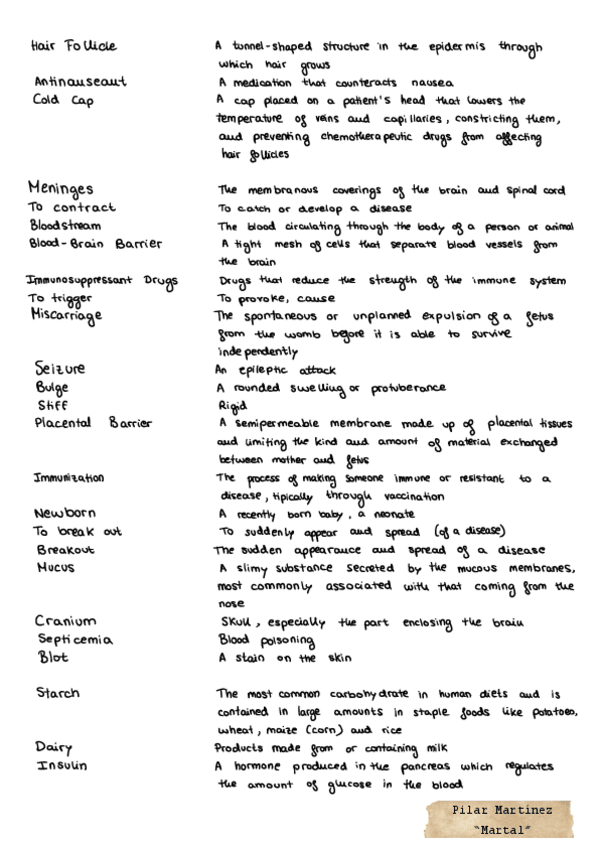 Hair Follicle A tunnel-shaped structure in the epidermis through
which hair grows
Antinauseaut A medication that counteracts nausea
Cold Cap A cap placed on a patient's head that lowers the
temperature of veins and capillaries, constricting them,
and preventing chemotherapeutic drugs from affecting
hair follicles
Meninges The membranous coverings of the brain and spinal cord
To contract To catch or develop a disease
Bloodstream The blood circulating through the body of a person or animal
Blood-Brain Barrier A tight mesh of cells that separate blood vessels from
the brain
Immunosuppressant Drugs Drugs that reduce the strength of the immune system
To trigger To provoke, cause
Miscarriage The spontaneous or unplanned expulsion of a fetus
from the womb before it is able to survive
independently
Seizure An epileptic attack
Bulge A rounded swelling or protuberance
Stiff Rigid
Placental Barrier A semipermeable membrane made up of placental tissues
and limiting the kind and amount of material exchanged
between mother and fetus
Immunization The process of making someone immune or resistant to a
disease, tipically through vaccination
Newborn A recently born baby, a neonate
To break out To suddenly appear and spread (of a disease)
Breakout The sudden appearance and spread of a disease
Mucus A slimy substance secreted by the mucous membranes,
most commonly associated with that coming from the
nose
Cranium Skull, especially the part enclosing the brain
Septicemia Blood poisoning
Blot A stain on the skin
Starch The most common carbohydrate in human diets and is
contained in large amounts in staple foods like potatoes,
wheat, maize (corn) and rice
Dairy Products made from or containing milk
Insulin A hormone produced in the pancreas which regulates
the amount of glucose in the blood
Pilar Martinez
"Martal"